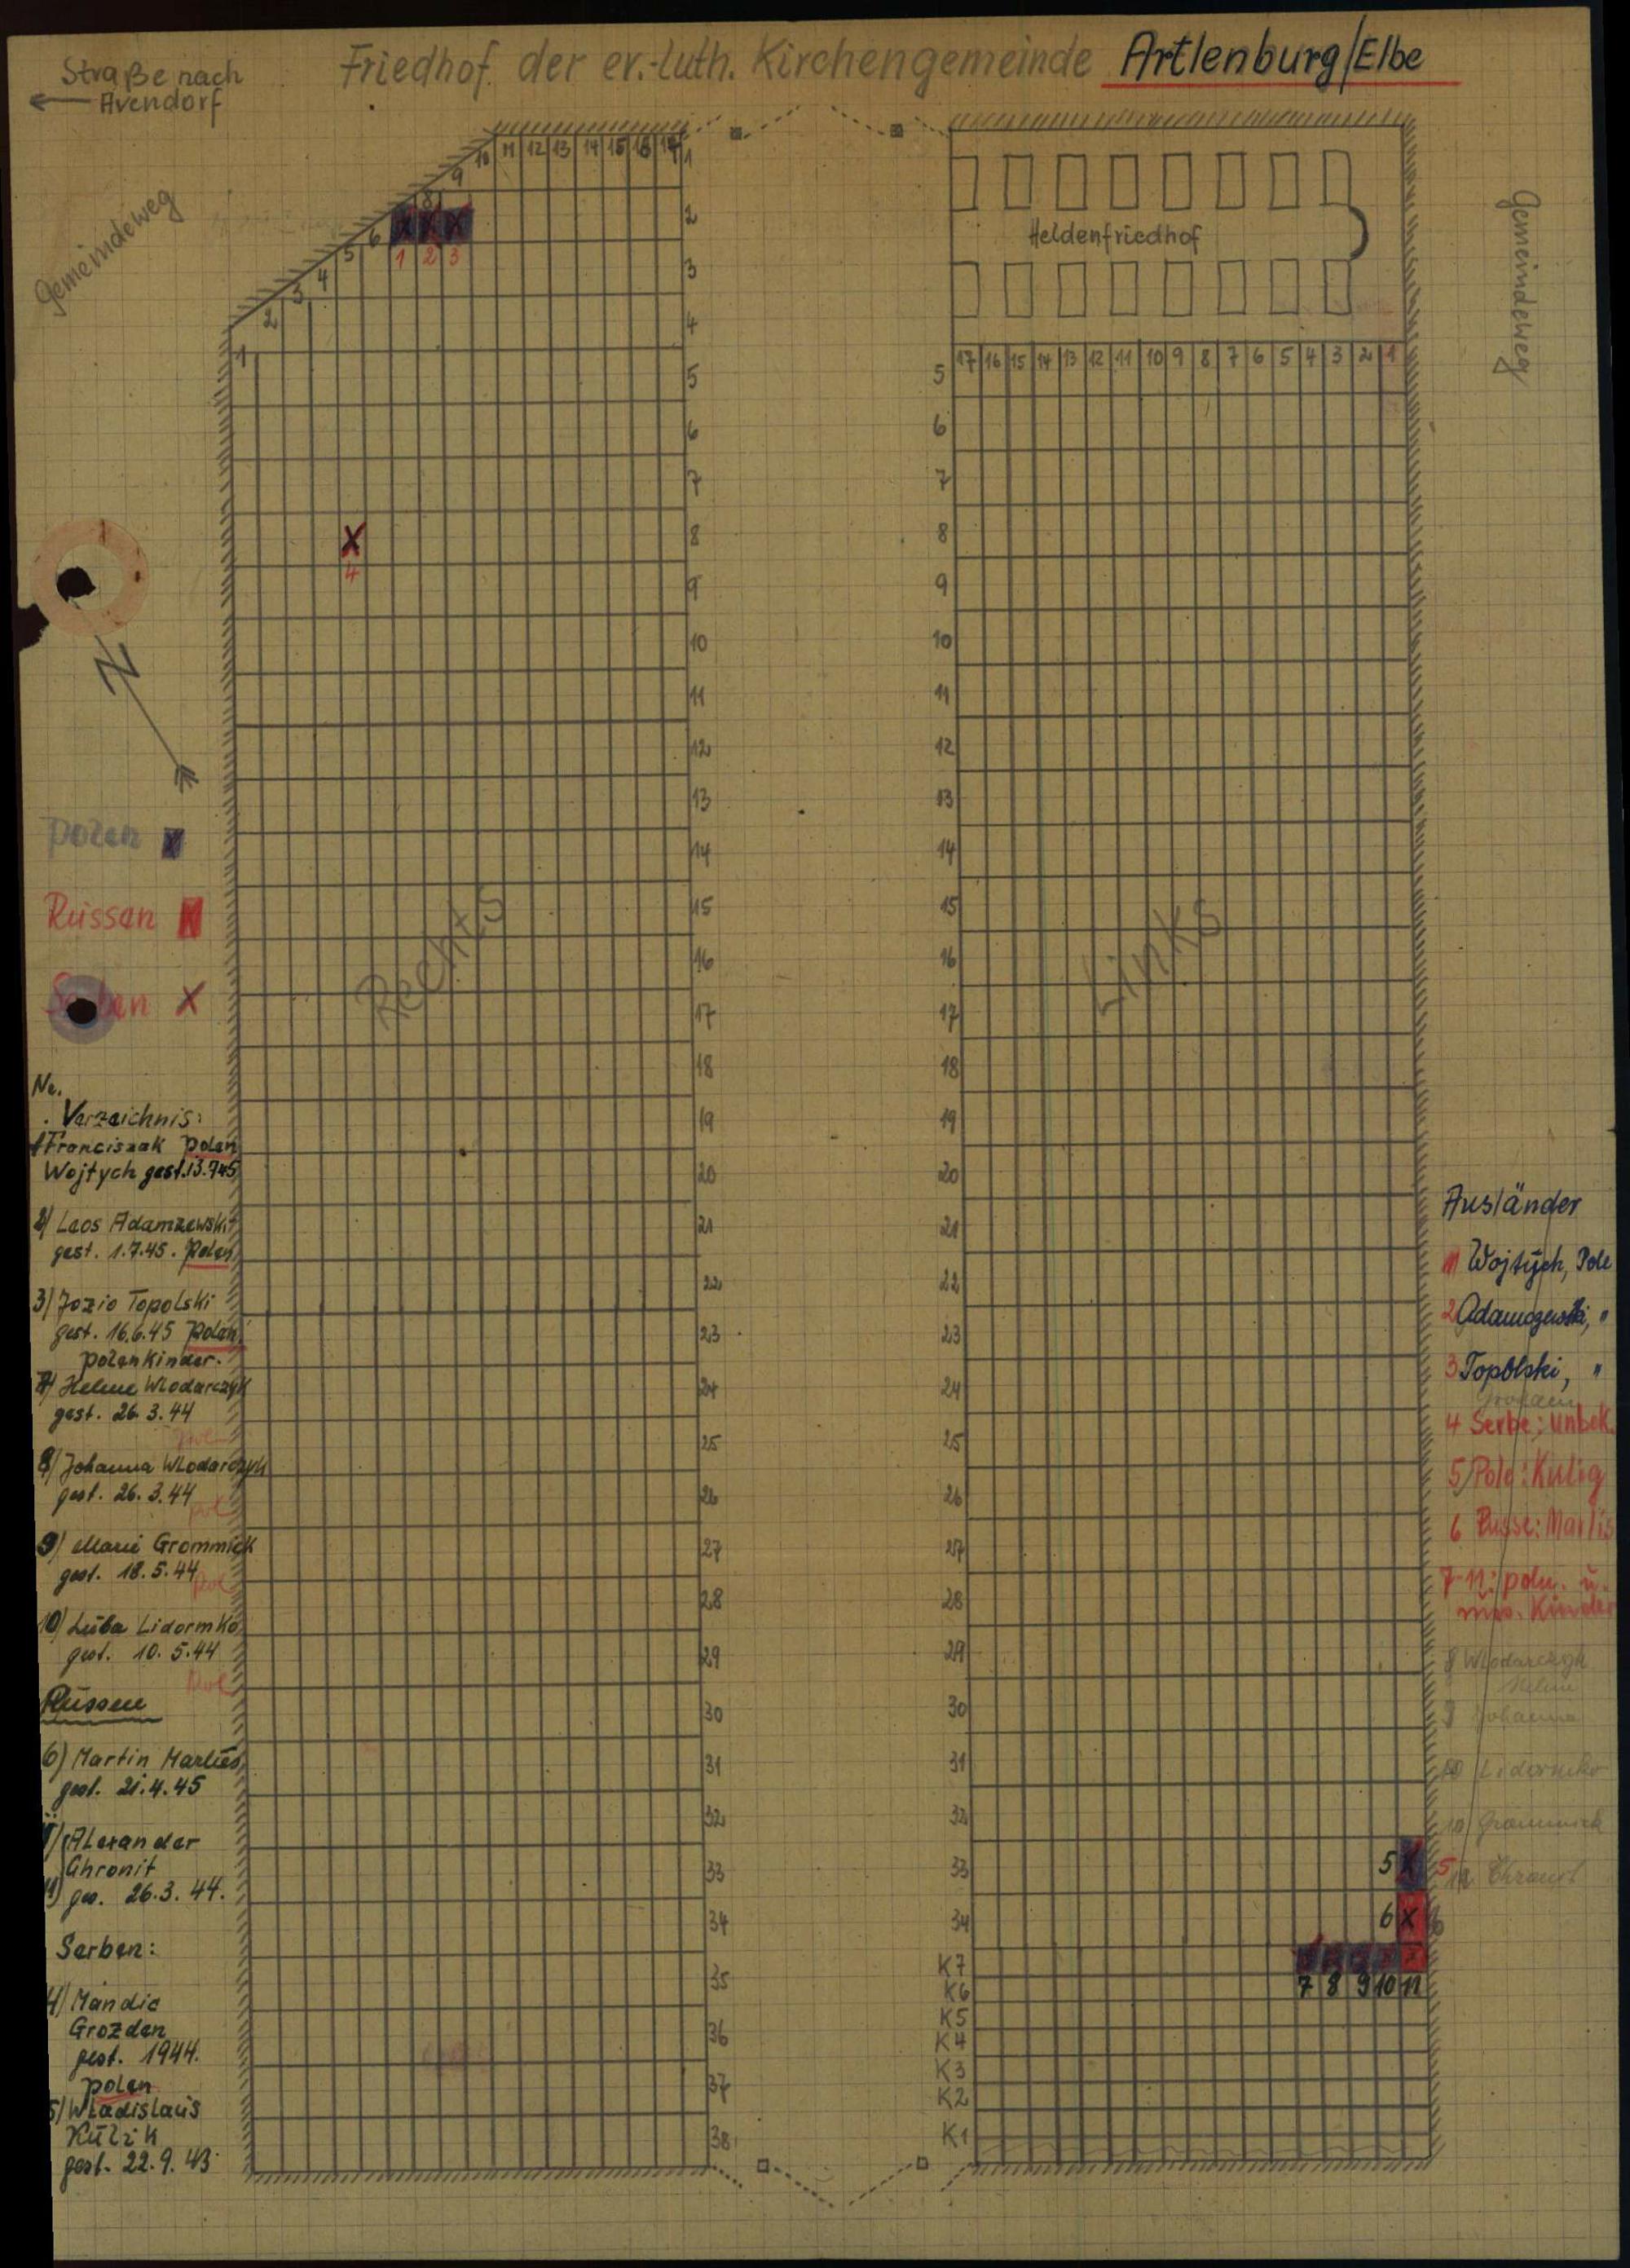 Friedhof der ev.-luth. Kirchengemeinde Artlenburg/Elbe
Straße nach
Avendorf
Gemeindeweg
Gemeindeweg
10 11 12 13 14 15 16 17
1 2 3 4 5 6 8 9
1 2 3
4
1
2
3
4
5
6
7
8
9
10
11
12
13
14
15
16
17
18
19
20
21
22
23
24
25
26
27
28
29
30
31
32
33
34
35
36
37
38
Rechts
Heldenfriedhof
17 16 15 14 13 12 11 10 9 8 7 6 5 4 3 2 1
5
6
7
8
9
10
11
12
13
14
15
16
17
18
19
20
21
22
23
24
25
26
27
28
29
30
31
32
33
34
K7
K6
K5
K4
K3
K2
K1
Links
5
6
7 8 9 10 11
N
Polen
Russen
Serben X
No.
Verzeichnis:
1 Franciszak Polen
Wojtych gest. 13.7.45
2) Leos Adamzewski
gest. 1.7.45. Polen
3) Jozio Topolski
gest. 16.6.45 Polen
Polenkinder.
7) Helene Wlodarczyk
gest. 26.3.44
8) Johanna Wlodarczyk
gest. 26.3.44
pol
9) Marie Grommick
gest. 18.5.44
pol
10) Luba Lidormko
gest. 10.5.44
pol
Russen
6) Martin Marlies
gest. 21.4.45
Alexander
Chronit
11) ges. 26.3.44.
Serben:
4) Mandic
Grozden
gest. 1944.
Polen
5) Wladislaus
Kulik
gest. 22.9.43
Ausländer
1 Wojtych, Pole
2 Adamczewski, "
3 Topolski, "
4 Serbe: unbek.
5 Pole: Kulig
6 Russe: Marlis
7-11: poln. u.
russ. Kinder
8 Wlodarczyk
Helene
9 Johanna
10 Lidormko
10 Grommick
5
12 Chronit